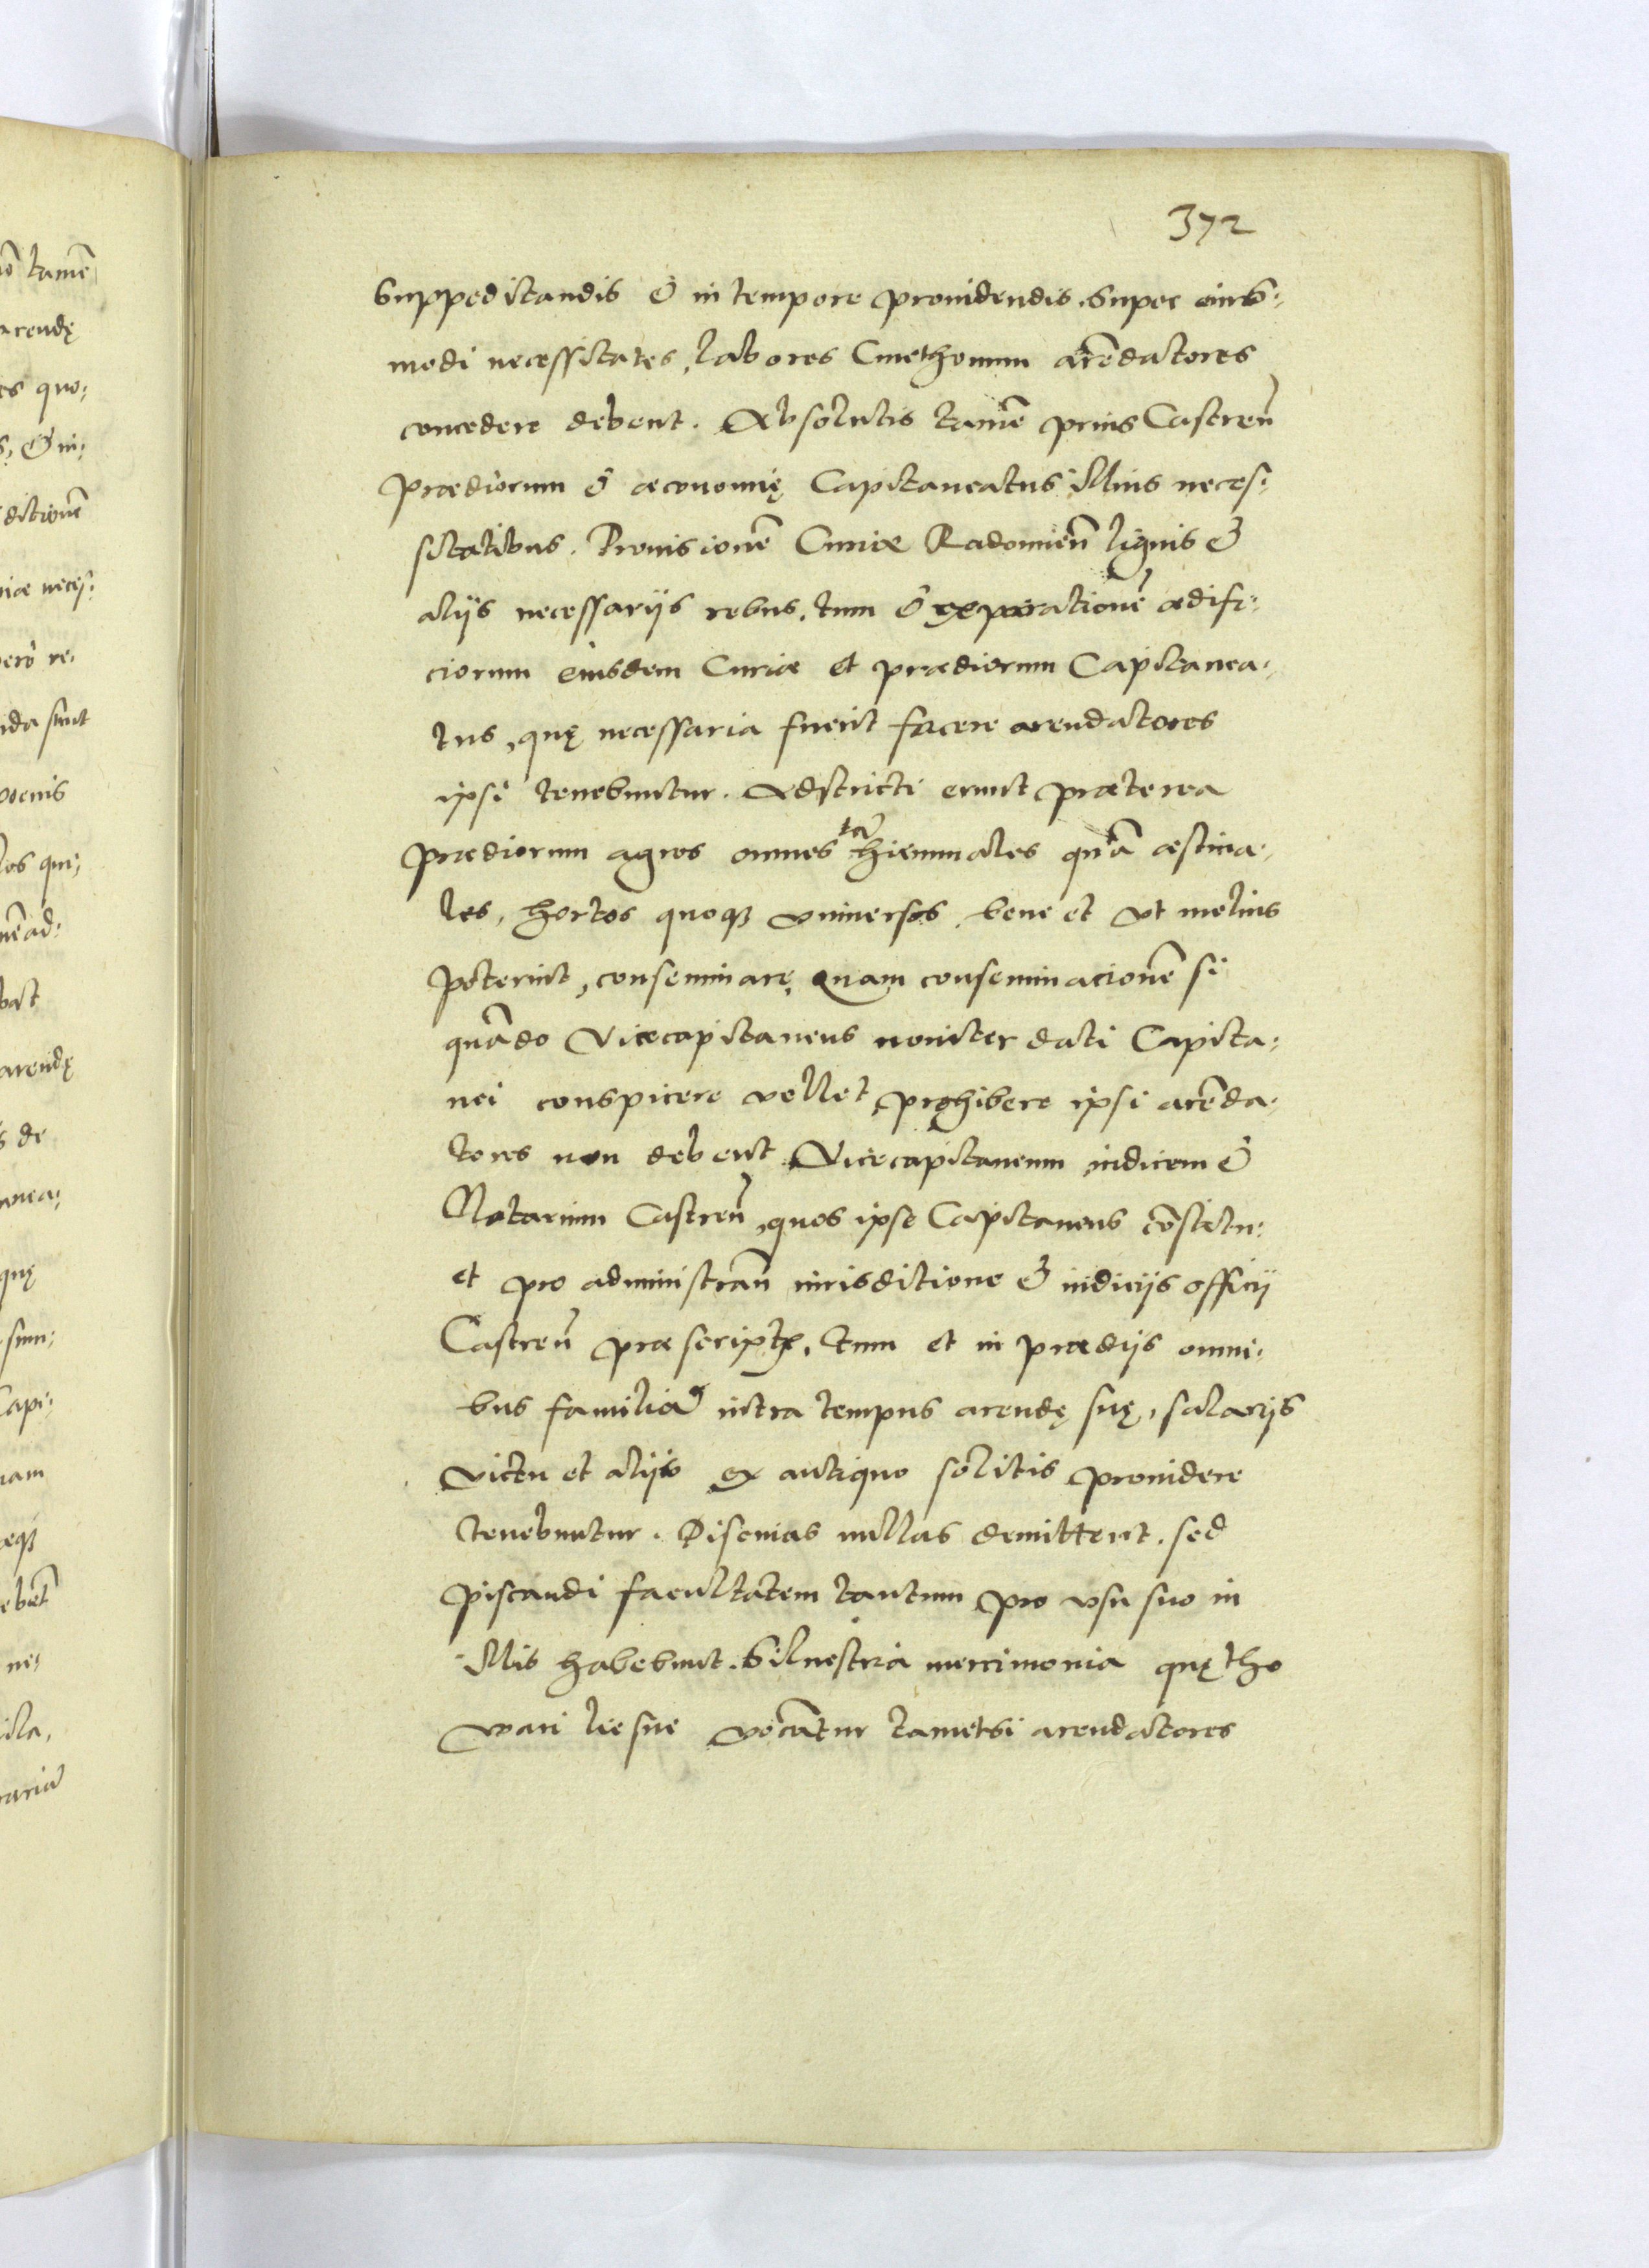 372
Suppeditandis & in tempore prouidendis. Super eius-
modi necessitates, labores Cmethonum arēdatores
concedere debent. Absolutis tamē prius Castreñ
prædiorum & œconomię Capitaneatus illius neces-
sitatibus. Prouisionē Curiæ Radomieñ lignis &
alijs necessarijs rebus, tum & reparationē ædifi-
ciorum eiusdem Curiæ et prædiorum Capitanea-
tus, quę necessaria fuerit facere arendatores
ipsi tenebuntur. Adstricti erunt præterea
prædiorum agros omnes tā hiemales quā æstiua-
les, hortos quoqȝ vniuersos, bene et vt melius
poterint, conseminare, Quam conseminacionē si
quādo Vicecapitaneus nouiter dati Capita-
nei conspicere vellet, prohibere ipsi arēda-
tores non debent. Vicecapitaneum iudicem &
Notarium Castreñ, quos ipse Capitaneus cōstitu-
et pro administrañ iurisditione & iudicijs officij
Castreñ præscript, tum et in prædijs omni-
bus familiā intra tempus arendę suę, salarijs
victu et alijs ex antiquo solitis prouidere
tenebuntur. Piscinas nullas demittent. sed
piscandi facultatem tantum pro vsu suo in
illis habebunt. Siluestria mercimonia quę tho
wari liesne vocātur tametsi arendatores
ō tamē
arendę
es quo-
& in-
ditionē
iæ necес-
erò re-
nda sunt
los qui-
arendę
de
anea-
quę
sum-
Capi-
nam
æqȝ
ebūt
ne-